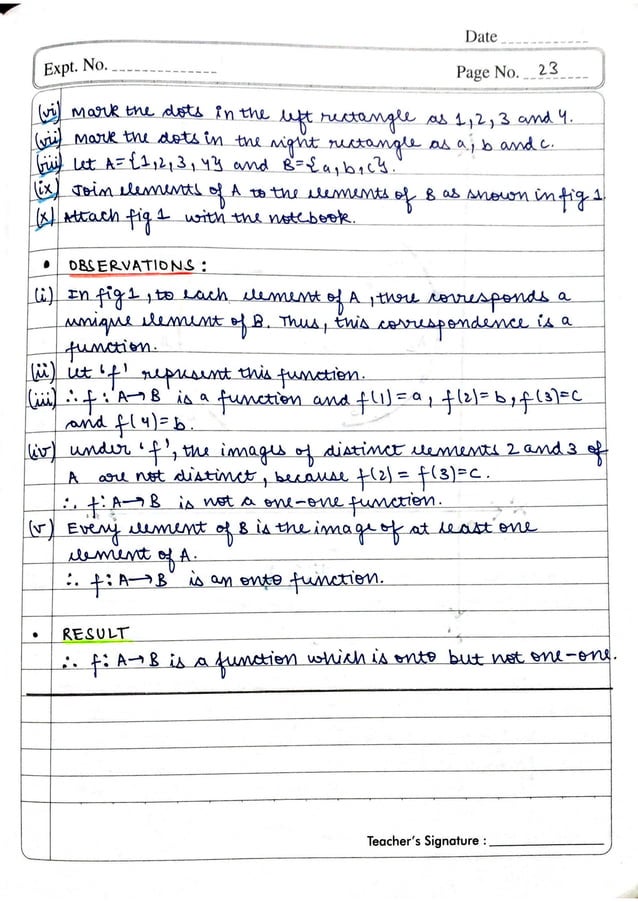 Date
Expt. No.
Page No. 23
(vi) Mark the dots in the left rectangle as 1, 2, 3 and 4.
(vii) Mark the dots in the right rectangle as a, b and c.
(viii) Let A = {1, 2, 3, 4} and B = {a, b, c}.
(ix) Join elements of A to the elements of B as shown in fig 1.
(x) Attach fig 1 with the notebook.
• OBSERVATIONS :
(i) In fig 1, to each element of A, there corresponds a
unique element of B. Thus, this correspondence is a
function.
(ii) Let 'f' represent this function.
(iii) ∴ f : A → B is a function and f(1) = a, f(2) = b, f(3) = c
and f(4) = b.
(iv) Under 'f', the images of distinct elements 2 and 3 of
A are not distinct, because f(2) = f(3) = c.
∴ f : A → B is not a one-one function.
(v) Every element of B is the image of at least one
element of A.
∴ f : A → B is an onto function.
• RESULT
∴ f : A → B is a function which is onto but not one-one.
Teacher's Signature :